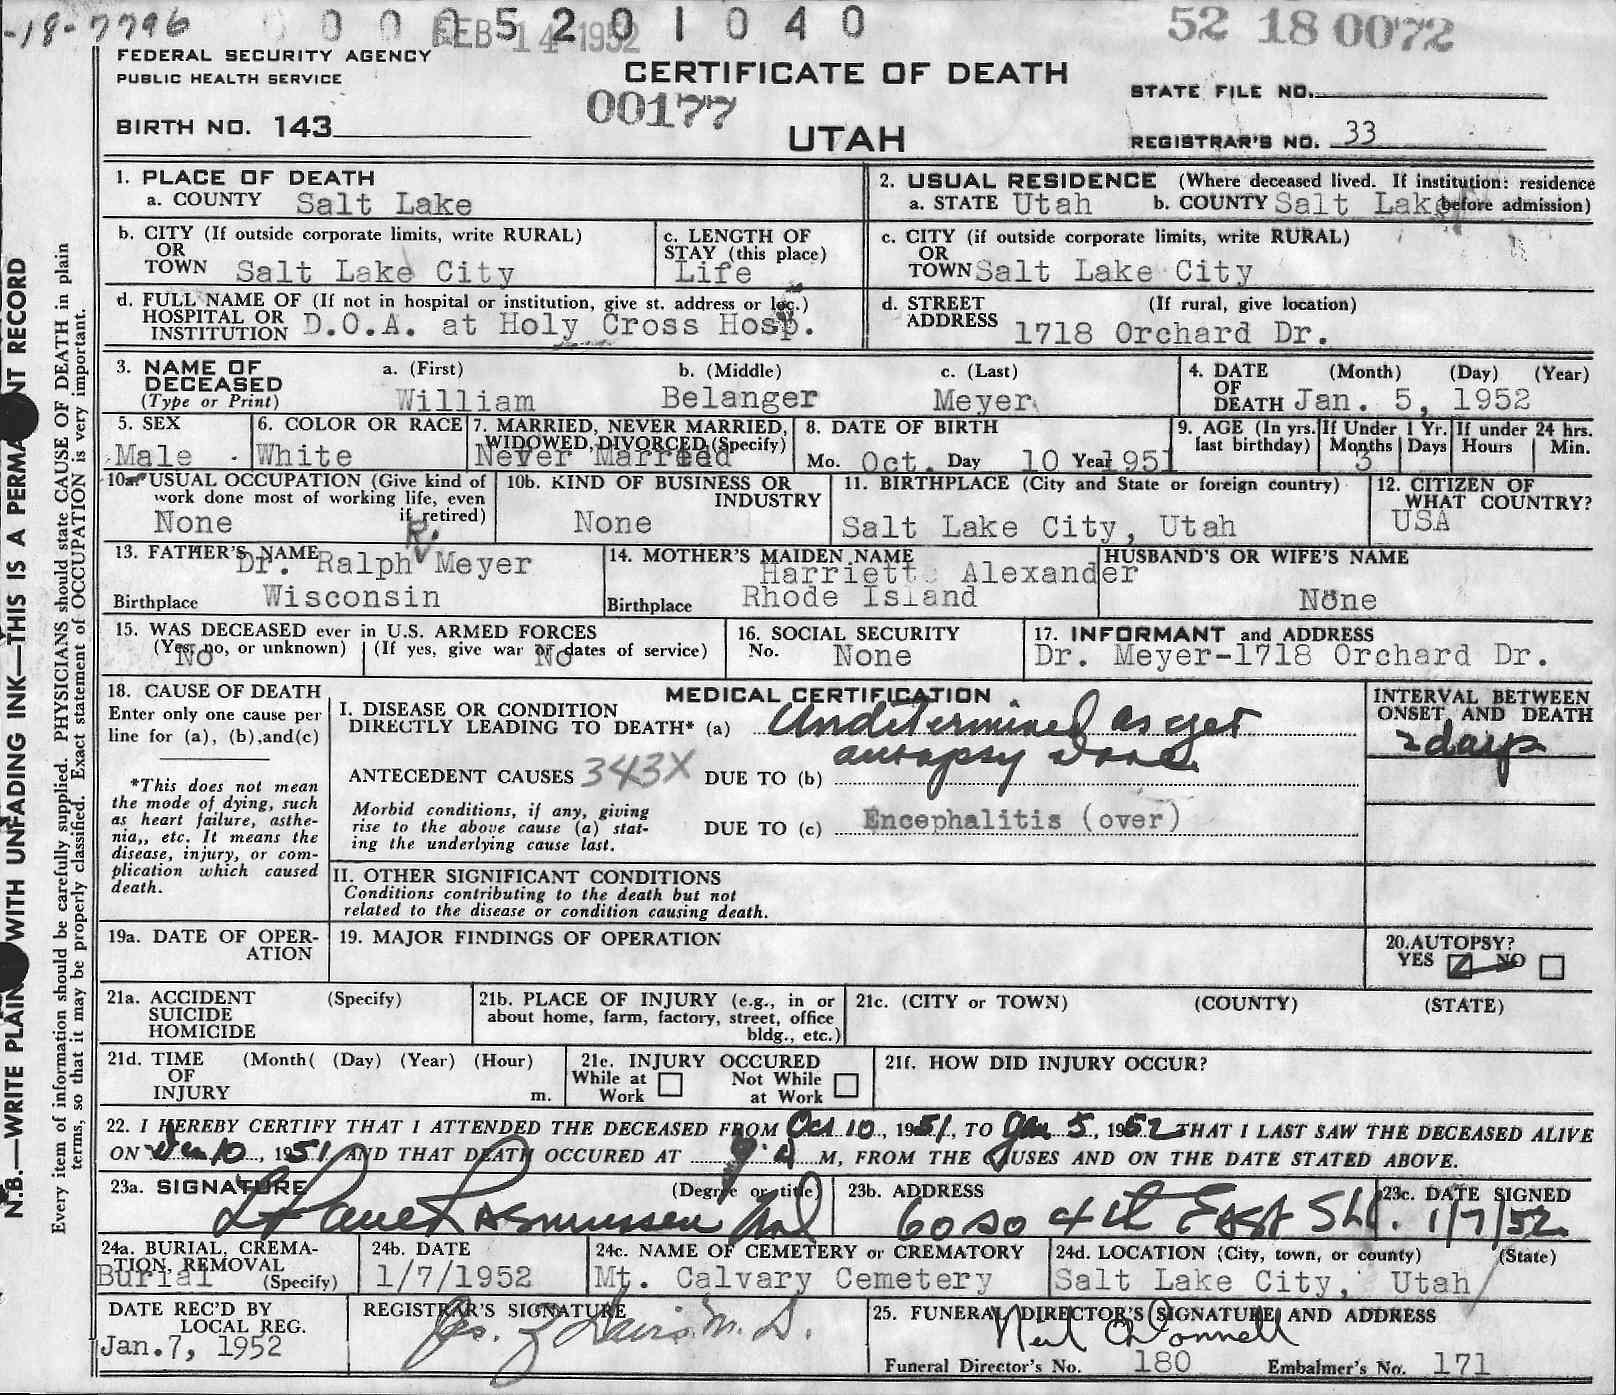 -18-7796
0 0 0 5 2 0 1 0 4 0
FEB 14 1952
52 18 0072
FEDERAL SECURITY AGENCY
PUBLIC HEALTH SERVICE
CERTIFICATE OF DEATH
STATE FILE NO.
00177
BIRTH NO. 143
UTAH
REGISTRAR'S NO. 33
1. PLACE OF DEATH
a. COUNTY Salt Lake
2. USUAL RESIDENCE (Where deceased lived. If institution: residence before admission)
a. STATE Utah b. COUNTY Salt Lake
b. CITY (If outside corporate limits, write RURAL)
OR
TOWN Salt Lake City
c. LENGTH OF
STAY (this place)
Life
c. CITY (if outside corporate limits, write RURAL)
OR
TOWN Salt Lake City
d. FULL NAME OF (If not in hospital or institution, give st. address or loc.)
HOSPITAL OR
INSTITUTION D.O.A. at Holy Cross Hosp.
d. STREET (If rural, give location)
ADDRESS 1718 Orchard Dr.
3. NAME OF
DECEASED
(Type or Print)
a. (First) b. (Middle) c. (Last)
William Belanger Meyer
4. DATE (Month) (Day) (Year)
OF
DEATH Jan. 5, 1952
5. SEX
Male
6. COLOR OR RACE
White
7. MARRIED, NEVER MARRIED,
WIDOWED, DIVORCED (Specify)
Never Married
8. DATE OF BIRTH
Mo. Oct. Day 10 Year 1951
9. AGE (In yrs. last birthday)
If Under 1 Yr.
Months Days
3
If under 24 hrs.
Hours Min.
10a. USUAL OCCUPATION (Give kind of
work done most of working life, even
if retired)
None
10b. KIND OF BUSINESS OR
INDUSTRY
None
11. BIRTHPLACE (City and State or foreign country)
Salt Lake City, Utah
12. CITIZEN OF
WHAT COUNTRY?
USA
13. FATHER'S NAME
Dr. Ralph R. Meyer
Birthplace Wisconsin
14. MOTHER'S MAIDEN NAME
Harriett Alexander
Birthplace Rhode Island
HUSBAND'S OR WIFE'S NAME
None
15. WAS DECEASED ever in U.S. ARMED FORCES
(Yes, no, or unknown) (If yes, give war or dates of service)
No No
16. SOCIAL SECURITY
No. None
17. INFORMANT and ADDRESS
Dr. Meyer-1718 Orchard Dr.
18. CAUSE OF DEATH
Enter only one cause per
line for (a), (b), and(c)
*This does not mean
the mode of dying, such
as heart failure, asthe-
nia,, etc. It means the
disease, injury, or com-
plication which caused
death.
MEDICAL CERTIFICATION
I. DISEASE OR CONDITION
DIRECTLY LEADING TO DEATH* (a) Undetermined as yet
autopsy done
ANTECEDENT CAUSES 343X DUE TO (b)
Morbid conditions, if any, giving
rise to the above cause (a) stat-
ing the underlying cause last.
DUE TO (c) Encephalitis (over)
INTERVAL BETWEEN
ONSET AND DEATH
2 days
II. OTHER SIGNIFICANT CONDITIONS
Conditions contributing to the death but not
related to the disease or condition causing death.
19a. DATE OF OPER-
ATION
19. MAJOR FINDINGS OF OPERATION
20. AUTOPSY?
YES NO
21a. ACCIDENT (Specify)
SUICIDE
HOMICIDE
21b. PLACE OF INJURY (e.g., in or
about home, farm, factory, street, office
bldg., etc.)
21c. (CITY or TOWN) (COUNTY) (STATE)
21d. TIME (Month( (Day) (Year) (Hour)
OF
INJURY m.
21e. INJURY OCCURED
While at Work Not While at Work
21f. HOW DID INJURY OCCUR?
22. I HEREBY CERTIFY THAT I ATTENDED THE DECEASED FROM Oct 10, 1951, TO Jan 5, 1952 THAT I LAST SAW THE DECEASED ALIVE
ON Dec 10, 1951 AND THAT DEATH OCCURED AT 9 a M, FROM THE CAUSES AND ON THE DATE STATED ABOVE.
23a. SIGNATURE (Degree or title)
Rasmussen Md
23b. ADDRESS
60 So 4th East SLC.
23c. DATE SIGNED
1/7/52
24a. BURIAL, CREMA-
TION, REMOVAL
(Specify)
Burial
24b. DATE
1/7/1952
24c. NAME OF CEMETERY or CREMATORY
Mt. Calvary Cemetery
24d. LOCATION (City, town, or county) (State)
Salt Lake City, Utah
DATE REC'D BY
LOCAL REG.
Jan.7, 1952
REGISTRAR'S SIGNATURE
Davis M. D.
25. FUNERAL DIRECTOR'S SIGNATURE AND ADDRESS
Neil O'Donnell
Funeral Director's No. 180 Embalmer's No. 171
N.B.—WRITE PLAIN WITH UNFADING INK—THIS IS A PERMANENT RECORD
Every item of information should be carefully supplied. PHYSICIANS should state CAUSE OF DEATH in plain
terms, so that it may be properly classified. Exact statement of OCCUPATION is very important.